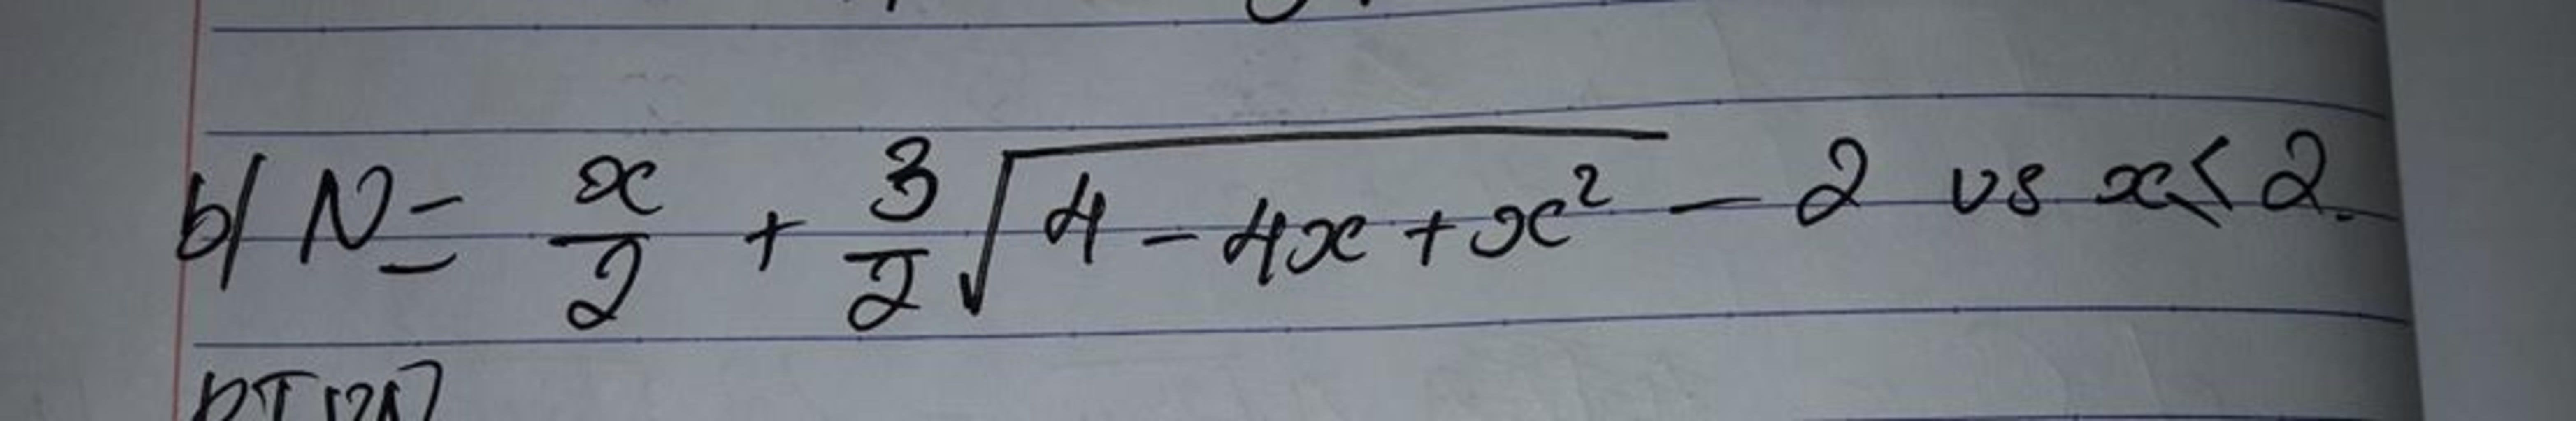 b/ N = x/2 + 3/2 √(4 - 4x + x²) - 2 vs x < 2.